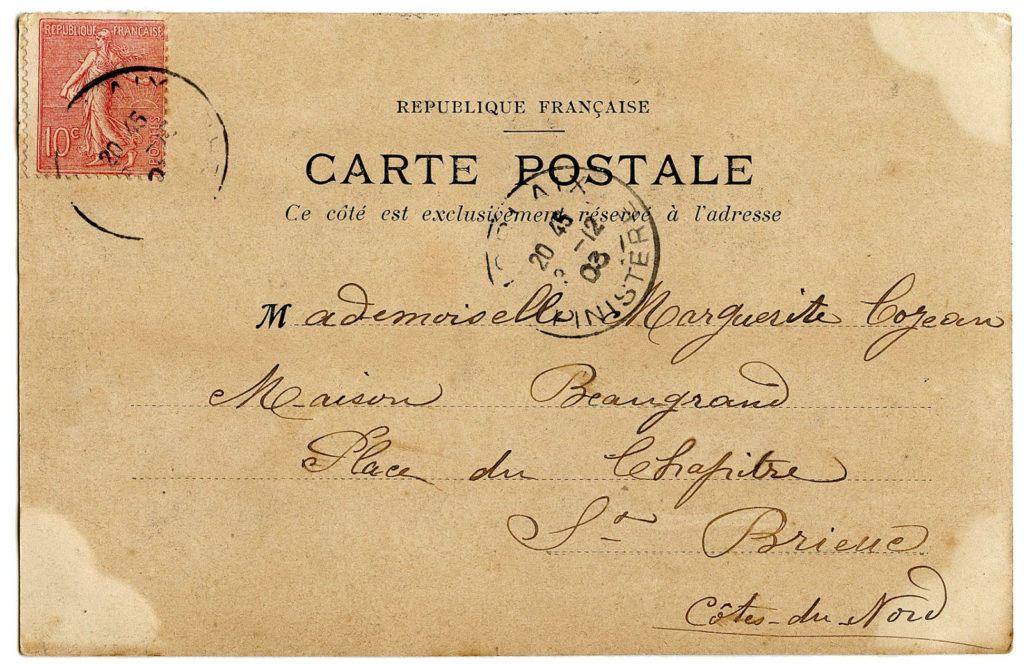 REPUBLIQUE FRANÇAISE
10c
POSTES
20 45
REPUBLIQUE FRANÇAISE
CARTE POSTALE
Ce côté est exclusivement réservé à l'adresse
20 45
-12
03
MINISTÈRE
Mademoiselle Marguerite Cozean
Maison Beaugrand
Place du Chapitre
St Brieuc
Côtes-du-Nord